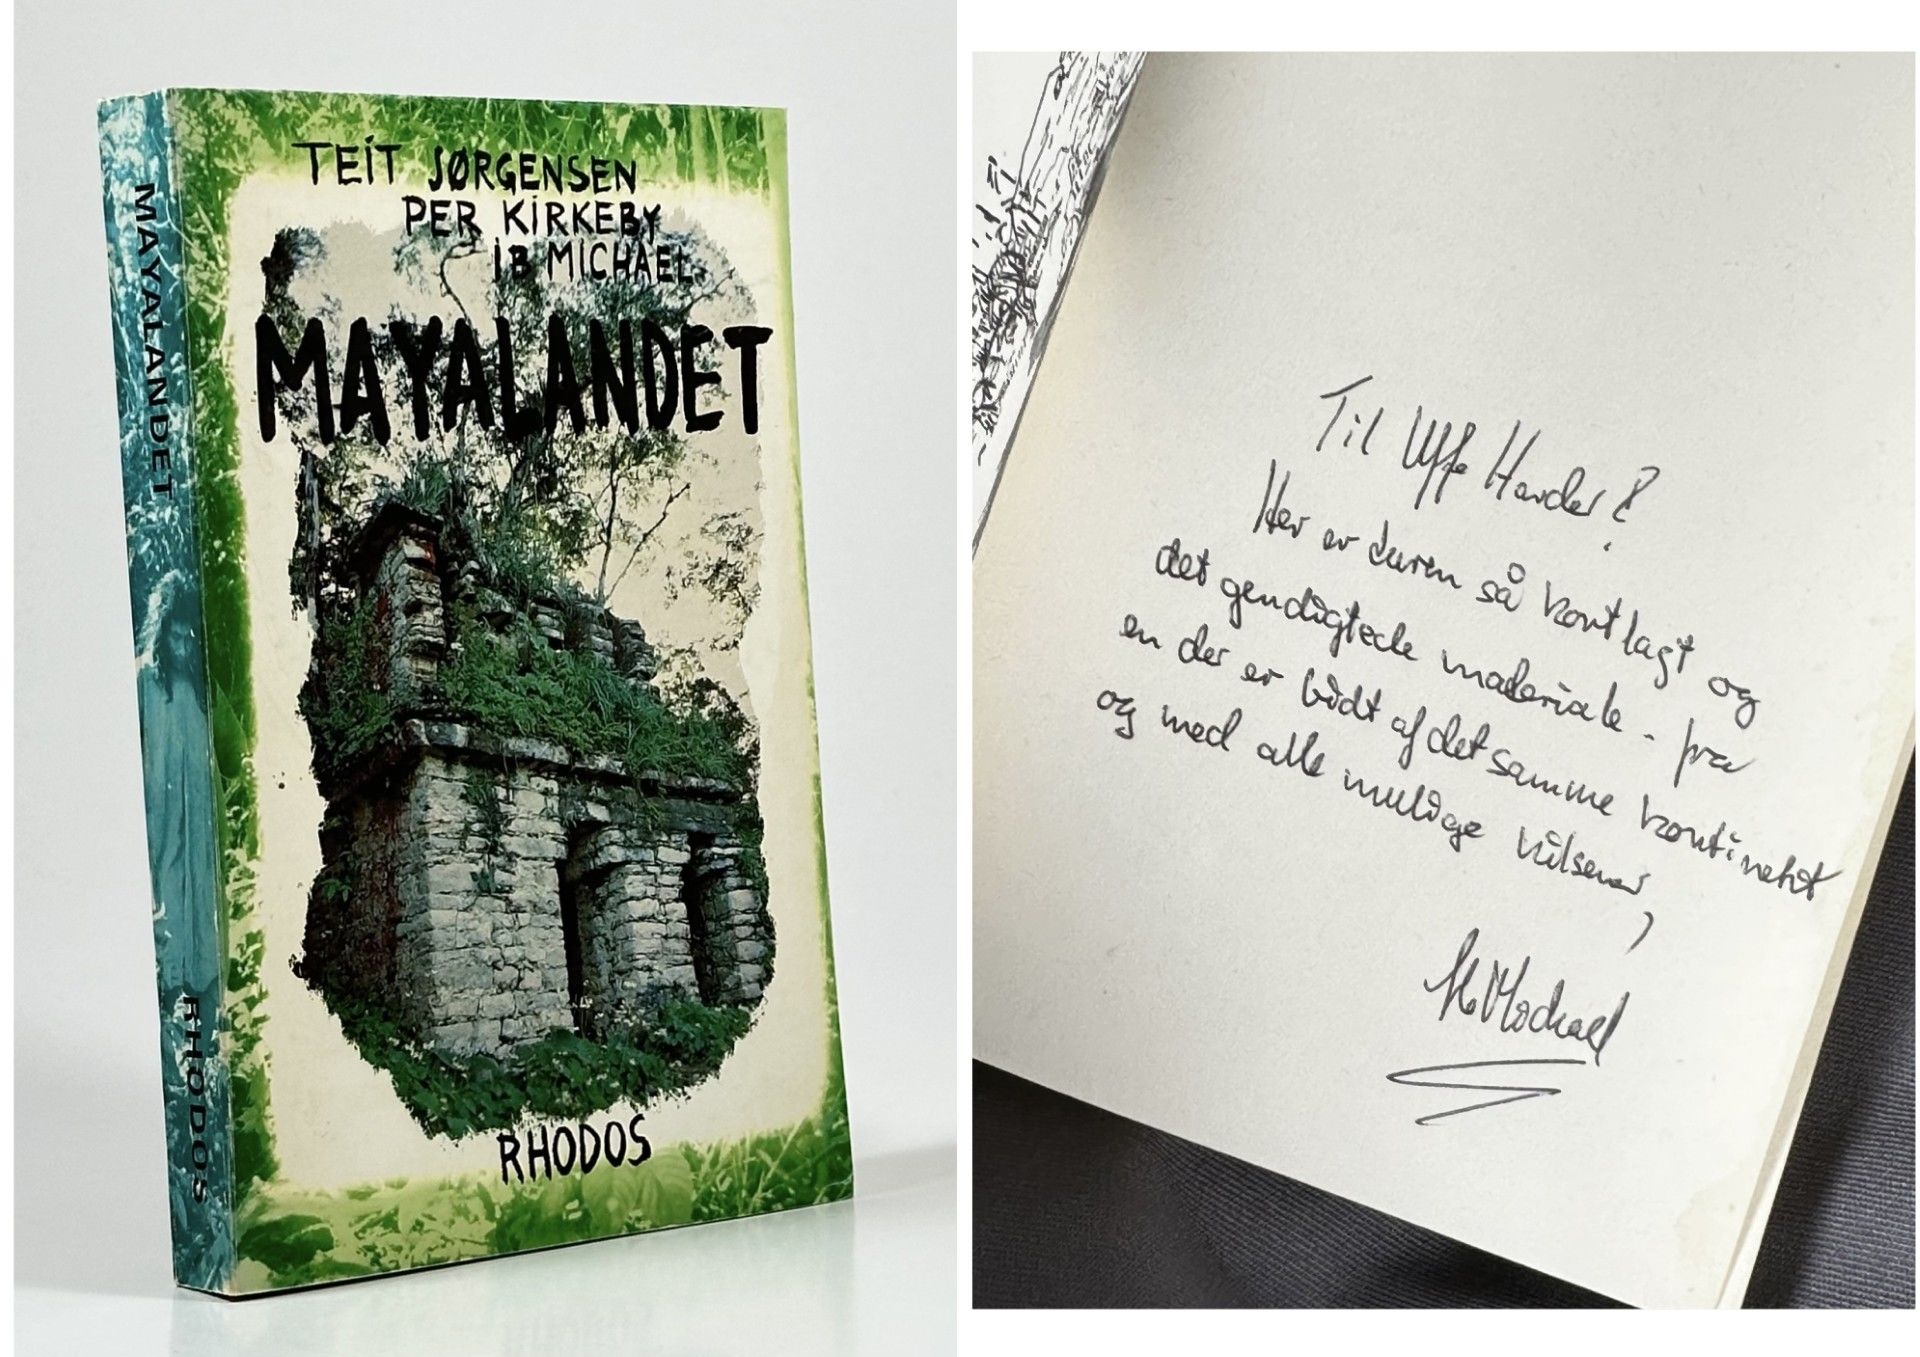 MAYALANDET
RHODOS
TEIT JØRGENSEN
PER KIRKEBY
IB MICHAEL
MAYALANDET
RHODOS
Til Uffe Harder!
Her er turen så kortlagt og
det gendigtede materiale - fra
en der er bidt af det samme kontinent
og med alle mulige hilsener,
Ib Michael